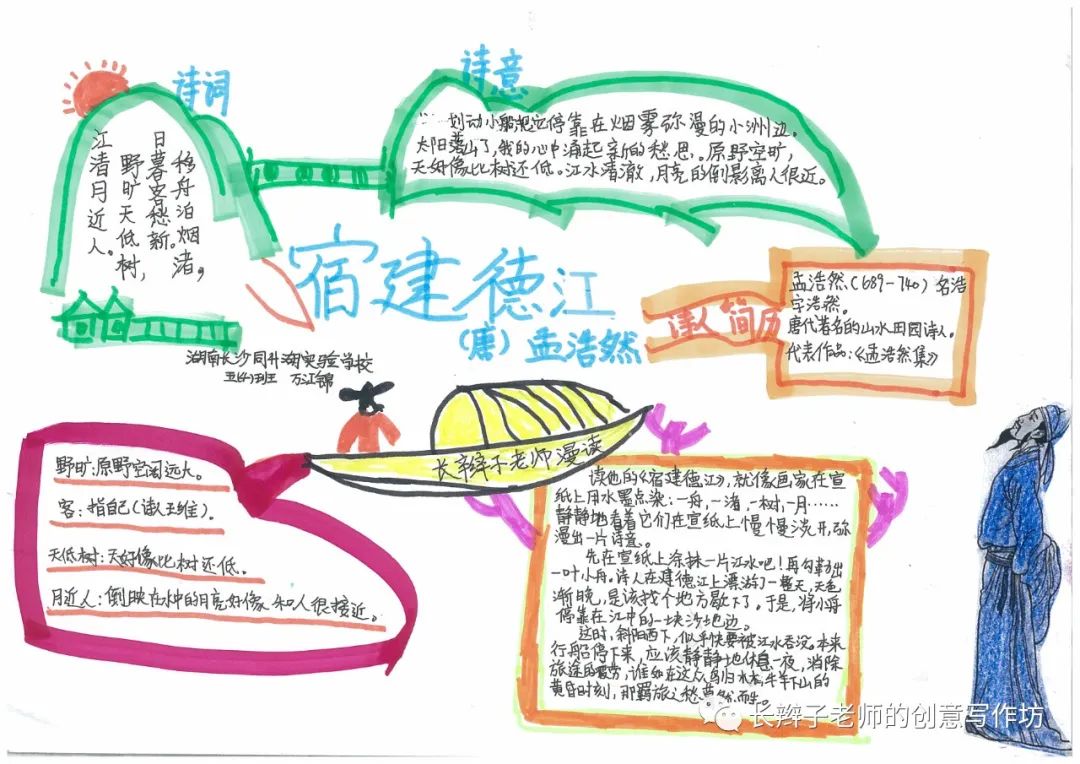 诗词
移舟泊烟渚，
日暮客愁新。
野旷天低树，
江清月近人。
诗意
划动小船把它停靠在烟雾弥漫的小洲边。
太阳落山了，我的心中涌起新的愁思。原野空旷，
天好像比树还低。江水清澈，月亮的倒影离人很近。
宿建德江
（唐）孟浩然
诗人简历
孟浩然（689-740）名浩
字浩然。
唐代著名的山水田园诗人。
代表作品：《孟浩然集》
湖南长沙同升湖实验学校
五(4)班 万江锦
长辫子老师漫读
野旷：原野空阔远大。
客：指自己（诗人王维）。
天低树：天好像比树还低。
月近人：倒映在水中的月亮好像和人很接近。
读他的《宿建德江》，就像画家在宣
纸上用水墨点染：一舟，一渚，一树，一月……
静静地看着它们在宣纸上慢慢泼开，弥
漫出一片诗意。
先在宣纸上涂抹一片江水吧！再勾勒出
一叶小舟。诗人在建德江上漂游了一整天，天色
渐晚，是该找个地方歇下了。于是，将小舟
停靠在江中的一块沙地边。
这时，斜阳西下，似乎快要被江水吞没。本来
行船停下来，应该静静地休息一夜，消除
旅途的疲劳，谁知在这众鸟归林，牛羊下山的
黄昏时刻，那羁旅之愁蓦然而生。
长辫子老师的创意写作坊